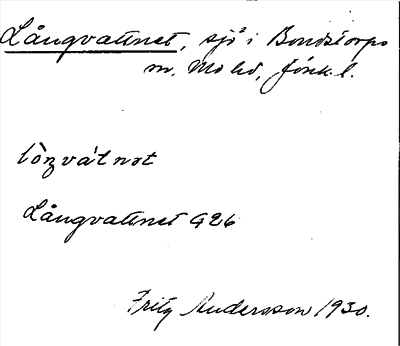 Långvattnet, sjö i Bondstorps
sn, Mo hd, Jönk. l.
lòŋvát nət
Långvattnet G26
Fritz Andersson 1930.